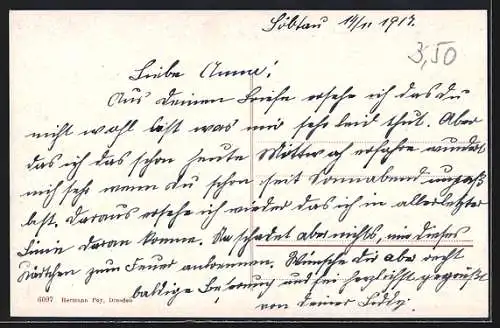 Löbtau 14/11 1917.
3,50
Liebe Anna!
Aus deinen Briefe ersehe ich das du
nicht wohl bist was mir sehr leid thut. Aber
das ich das schon heute Mittwoch erfahre wundert
mich sehr wenn du schon seit Sonnabend unpaß
bist. Daraus ersehe ich wieder das ich in allerletzter
Linie daran komme. Na schadet aber nichts, nur dieses
zum Feuer anbrennen. Wünsche dir aber recht
baldige Beßerung und sei herzlichst gegrüßt
von deiner
6097 Hermann Poy, Dresden